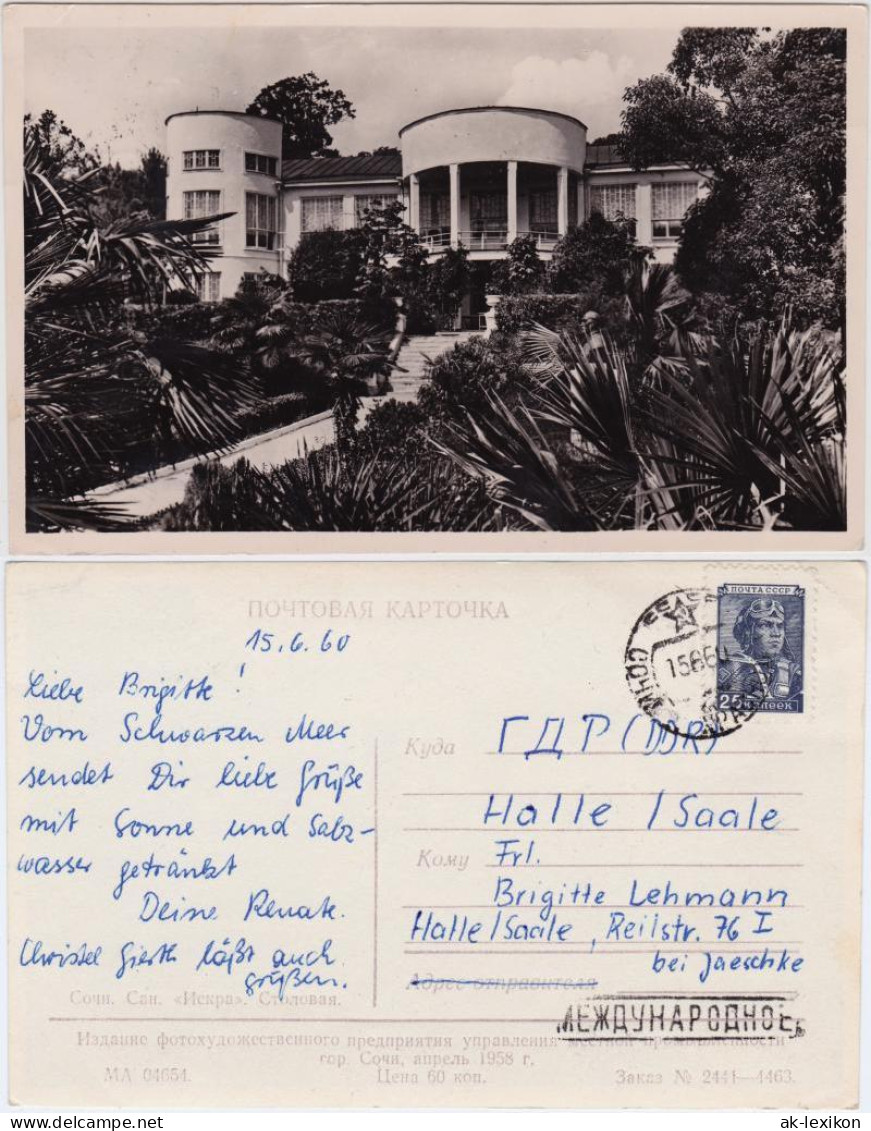 ПОЧТОВАЯ КАРТОЧКА
15.6.60
Liebe Brigitte!
Vom Schwarzen Meer
sendet Dir liebe Grüße
mit Sonne und Salz-
wasser getränkt
Deine Renate.
Christel Gierth läßt auch
grüßen.
Сочи. Сан. «Искра». Столовая.
ПОЧТА СССР
25 КОПЕЕК
СОЧИ
15660
Куда
ГДР (DDR)
Halle / Saale
Кому
Frl.
Brigitte Lehmann
Halle/Saale, Reilstr. 76 I
bei Jaeschke
Адрес отправителя
МЕЖДУНАРОДНОЕ
Издание фотохудожественного предприятия управления местной промышленности
гор. Сочи, апрель 1958 г.
МА 04654.
Цена 60 коп.
Заказ № 2441—4463.
ak-lexikon